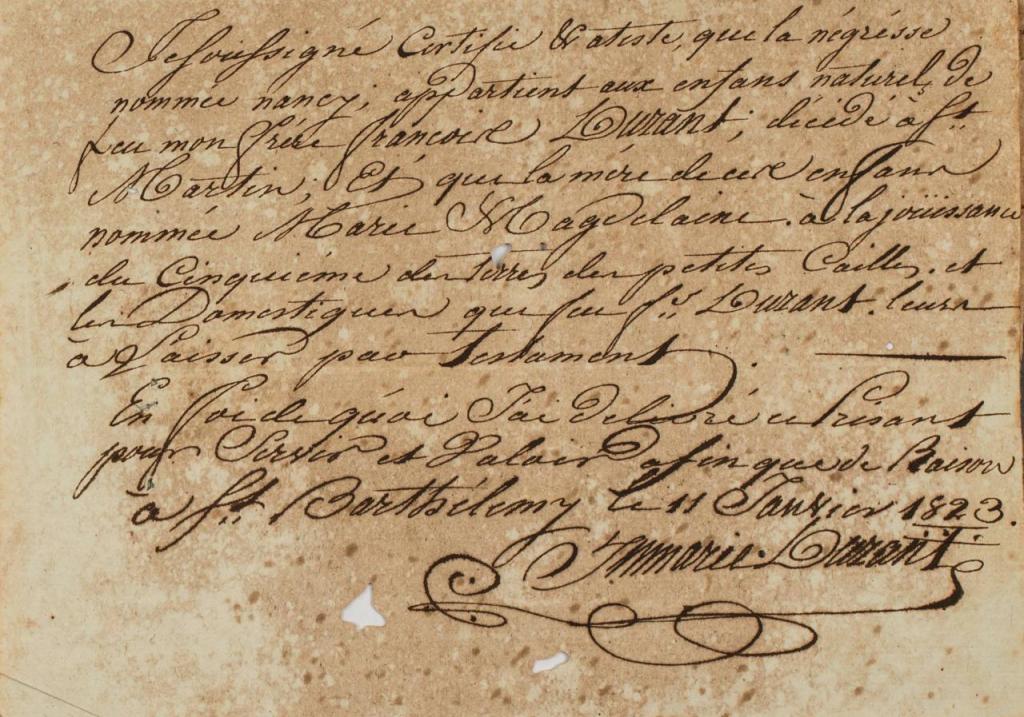 Je soussigné Certifie & ateste, que la négrésse
nommée nancy; appartient aux enfans naturels de
feu mon frére francois Duzant; décédé à St.
Martin; Et que la mére de ces enfans
nommée Marie Magdelaine. à la joüissance
du Cinquiéme des terres des petites Cailles. et
les Domestiques que feu fs. Duzant. leurs
à Laisser par testament
En foi de quoi J'ai Délivré ce Présant
pour Servir et Valoir afin que de Raison
à St. Barthélemy le 11 Janvier 1823.
Duzant.